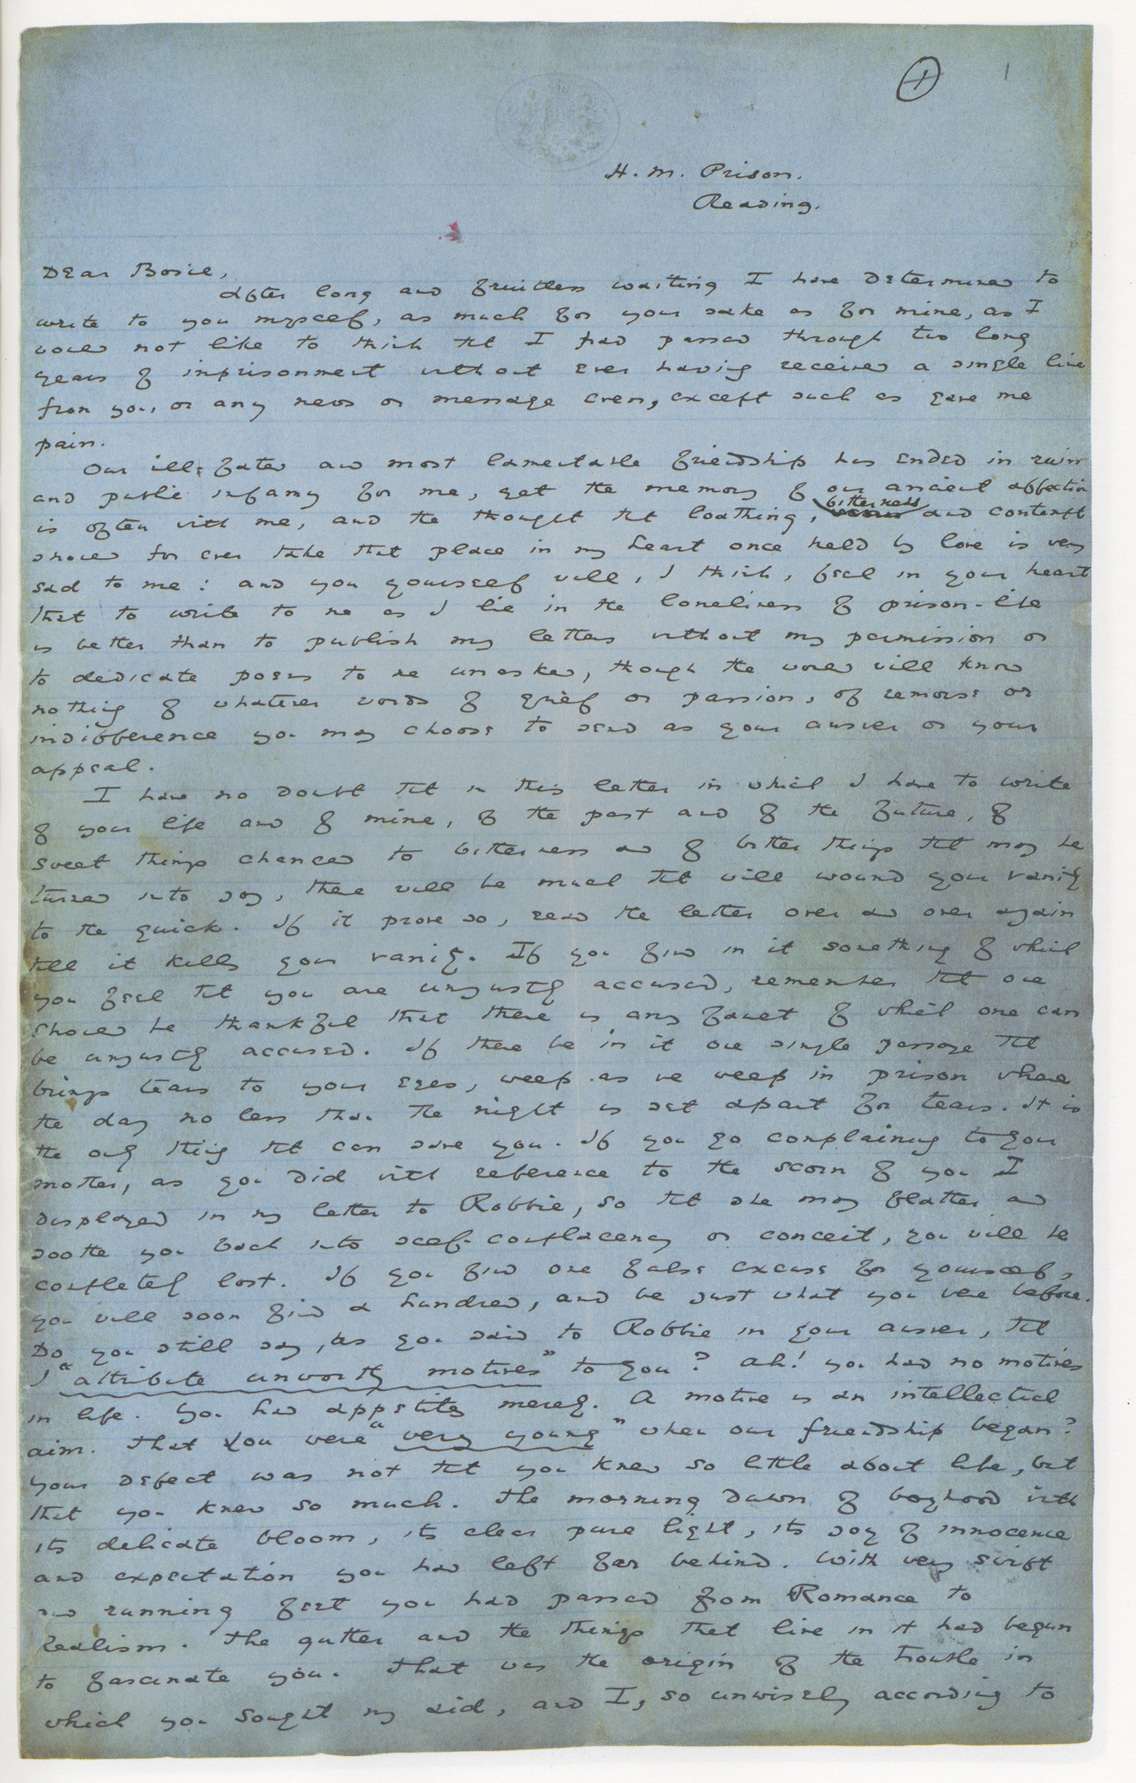 1
1
H. M. Prison.
Reading.
Dear Bosie,
After long and fruitless waiting I have determined to
write to you myself, as much for your sake as for mine, as I
would not like to think that I had passed through two long
years of imprisonment without ever having received a single line
from you, or any news or message even, except such as gave me
pain.
Our ill-fated and most lamentable friendship has ended in ruin
and public infamy for me, yet the memory of our ancient affection
is often with me, and the thought that loathing, bitterness and contempt
should for ever take that place in my heart once held by love is very
sad to me: and you yourself will, I think, feel in your heart
that to write to me as I lie in the loneliness of prison-life
is better than to publish my letters without my permission or
to dedicate poems to me unasked, though the world will know
nothing of whatever words of grief or passion, of remorse or
indifference you may choose to send as your answer or your
appeal.
I have no doubt that in this letter in which I have to write
of your life and of mine, of the past and of the future, of
sweet things changed to bitterness and of bitter things that may be
turned into joy, there will be much that will wound your vanity
to the quick. If it prove so, read the letter over and over again
till it kills your vanity. If you find in it something of which
you feel that you are unjustly accused, remember that one
should be thankful that there is any fault of which one can
be unjustly accused. If there be in it one single passage that
brings tears to your eyes, weep as we weep in prison where
the day no less than the night is set apart for tears. It is
the only thing that can save you. If you go complaining to your
mother, as you did with reference to the scorn of you I
displayed in my letter to Robbie, so that she may flatter and
soothe you back into self-complacency or conceit, you will be
completely lost. If you find one false excuse for yourself,
you will soon find a hundred, and be just what you were before.
Do you still say, as you said to Robbie in your answer, that
I "attribute unworthy motives" to you? Ah! you had no motives
in life. You had appetites merely. A motive is an intellectual
aim. That you were "very young" when our friendship began?
Your defect was not that you knew so little about life, but
that you knew so much. The morning dawn of boyhood with
its delicate bloom, its clear pure light, its joy of innocence
and expectation you had left far behind. With very swift
and running feet you had passed from Romance to
Realism. The gutter and the things that live in it had begun
to fascinate you. That was the origin of the trouble in
which you sought my aid, and I, so unwisely according to